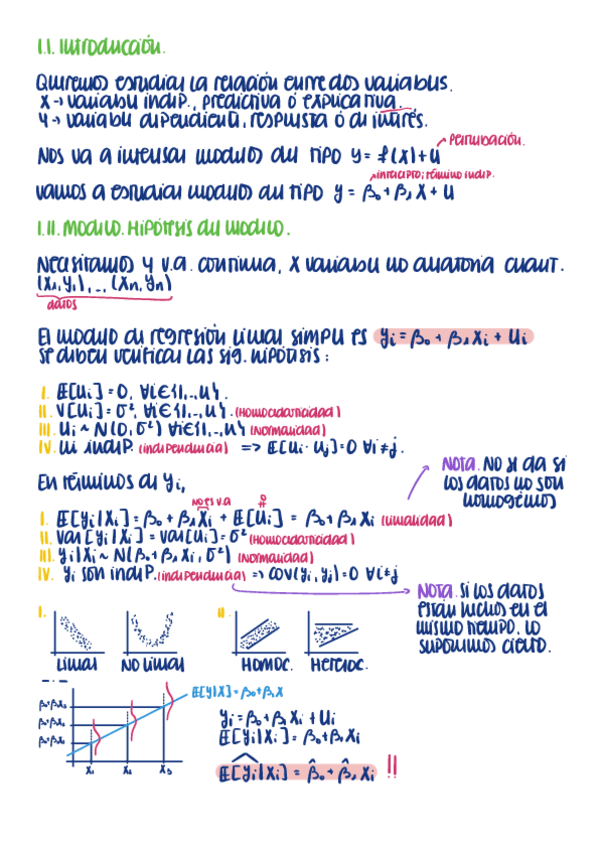 I.I. Introducción.
Queremos estudiar la relación entre dos variables.
X → variable indep., predictiva ó explicativa.
Y → variable dependiente, respuesta ó de interés.
Perturbación.
Nos va a interesar modelos del tipo y = f(x) + u
intercepto; término indep.
Vamos a estudiar modelos del tipo y = β₀ + β₁X + u
I.II. Modelo. Hipótesis del modelo.
Necesitamos Y v.a. continua, X variable no aleatoria cuant.
(x₁, y₁), .., (xn, yn)
datos
El modelo de regresión lineal simple es yi = β₀ + β₁xi + ui
Se deben verificar las sig. hipótesis:
I. E[ui] = 0, ∀i∈{1,..,n}.
II. V[ui] = σ², ∀i∈{1,..,n}. (Homocedasticidad)
III. ui ~ N(0, σ²) ∀i∈{1,..,n} (Normalidad)
IV. ui indep. (independencia) => E[ui · uj] = 0 ∀i≠j.
NOTA. No se da si
los datos no son
homogéneos
En términos de yi,
no es v.a
0
I. E[yi|xi] = β₀ + β₁xi + E[ui] = β₀ + β₁xi (linealidad)
II. Var[yi|xi] = Var[ui] = σ² (Homocedasticidad)
III. yi|xi ~ N(β₀ + β₁xi, σ²) (Normalidad)
IV. yi son indep. (independencia) => cov(yi, yj) = 0 ∀i≠j
NOTA. Si los datos
están hechos en el
mismo tiempo, lo
suponemos cierto.
I.
II.
Lineal
No lineal
Homoc.
Heteroc.
E[Y|X] = β₀ + β₁X
β₀+β₁x₃
β₀+β₁x₂
β₀+β₁x₁
x₁
x₂
x₃
yi = β₀ + β₁xi + ui
E[yi|xi] = β₀ + β₁xi
Ê[yi|xi] = β̂₀ + β̂₁xi !!